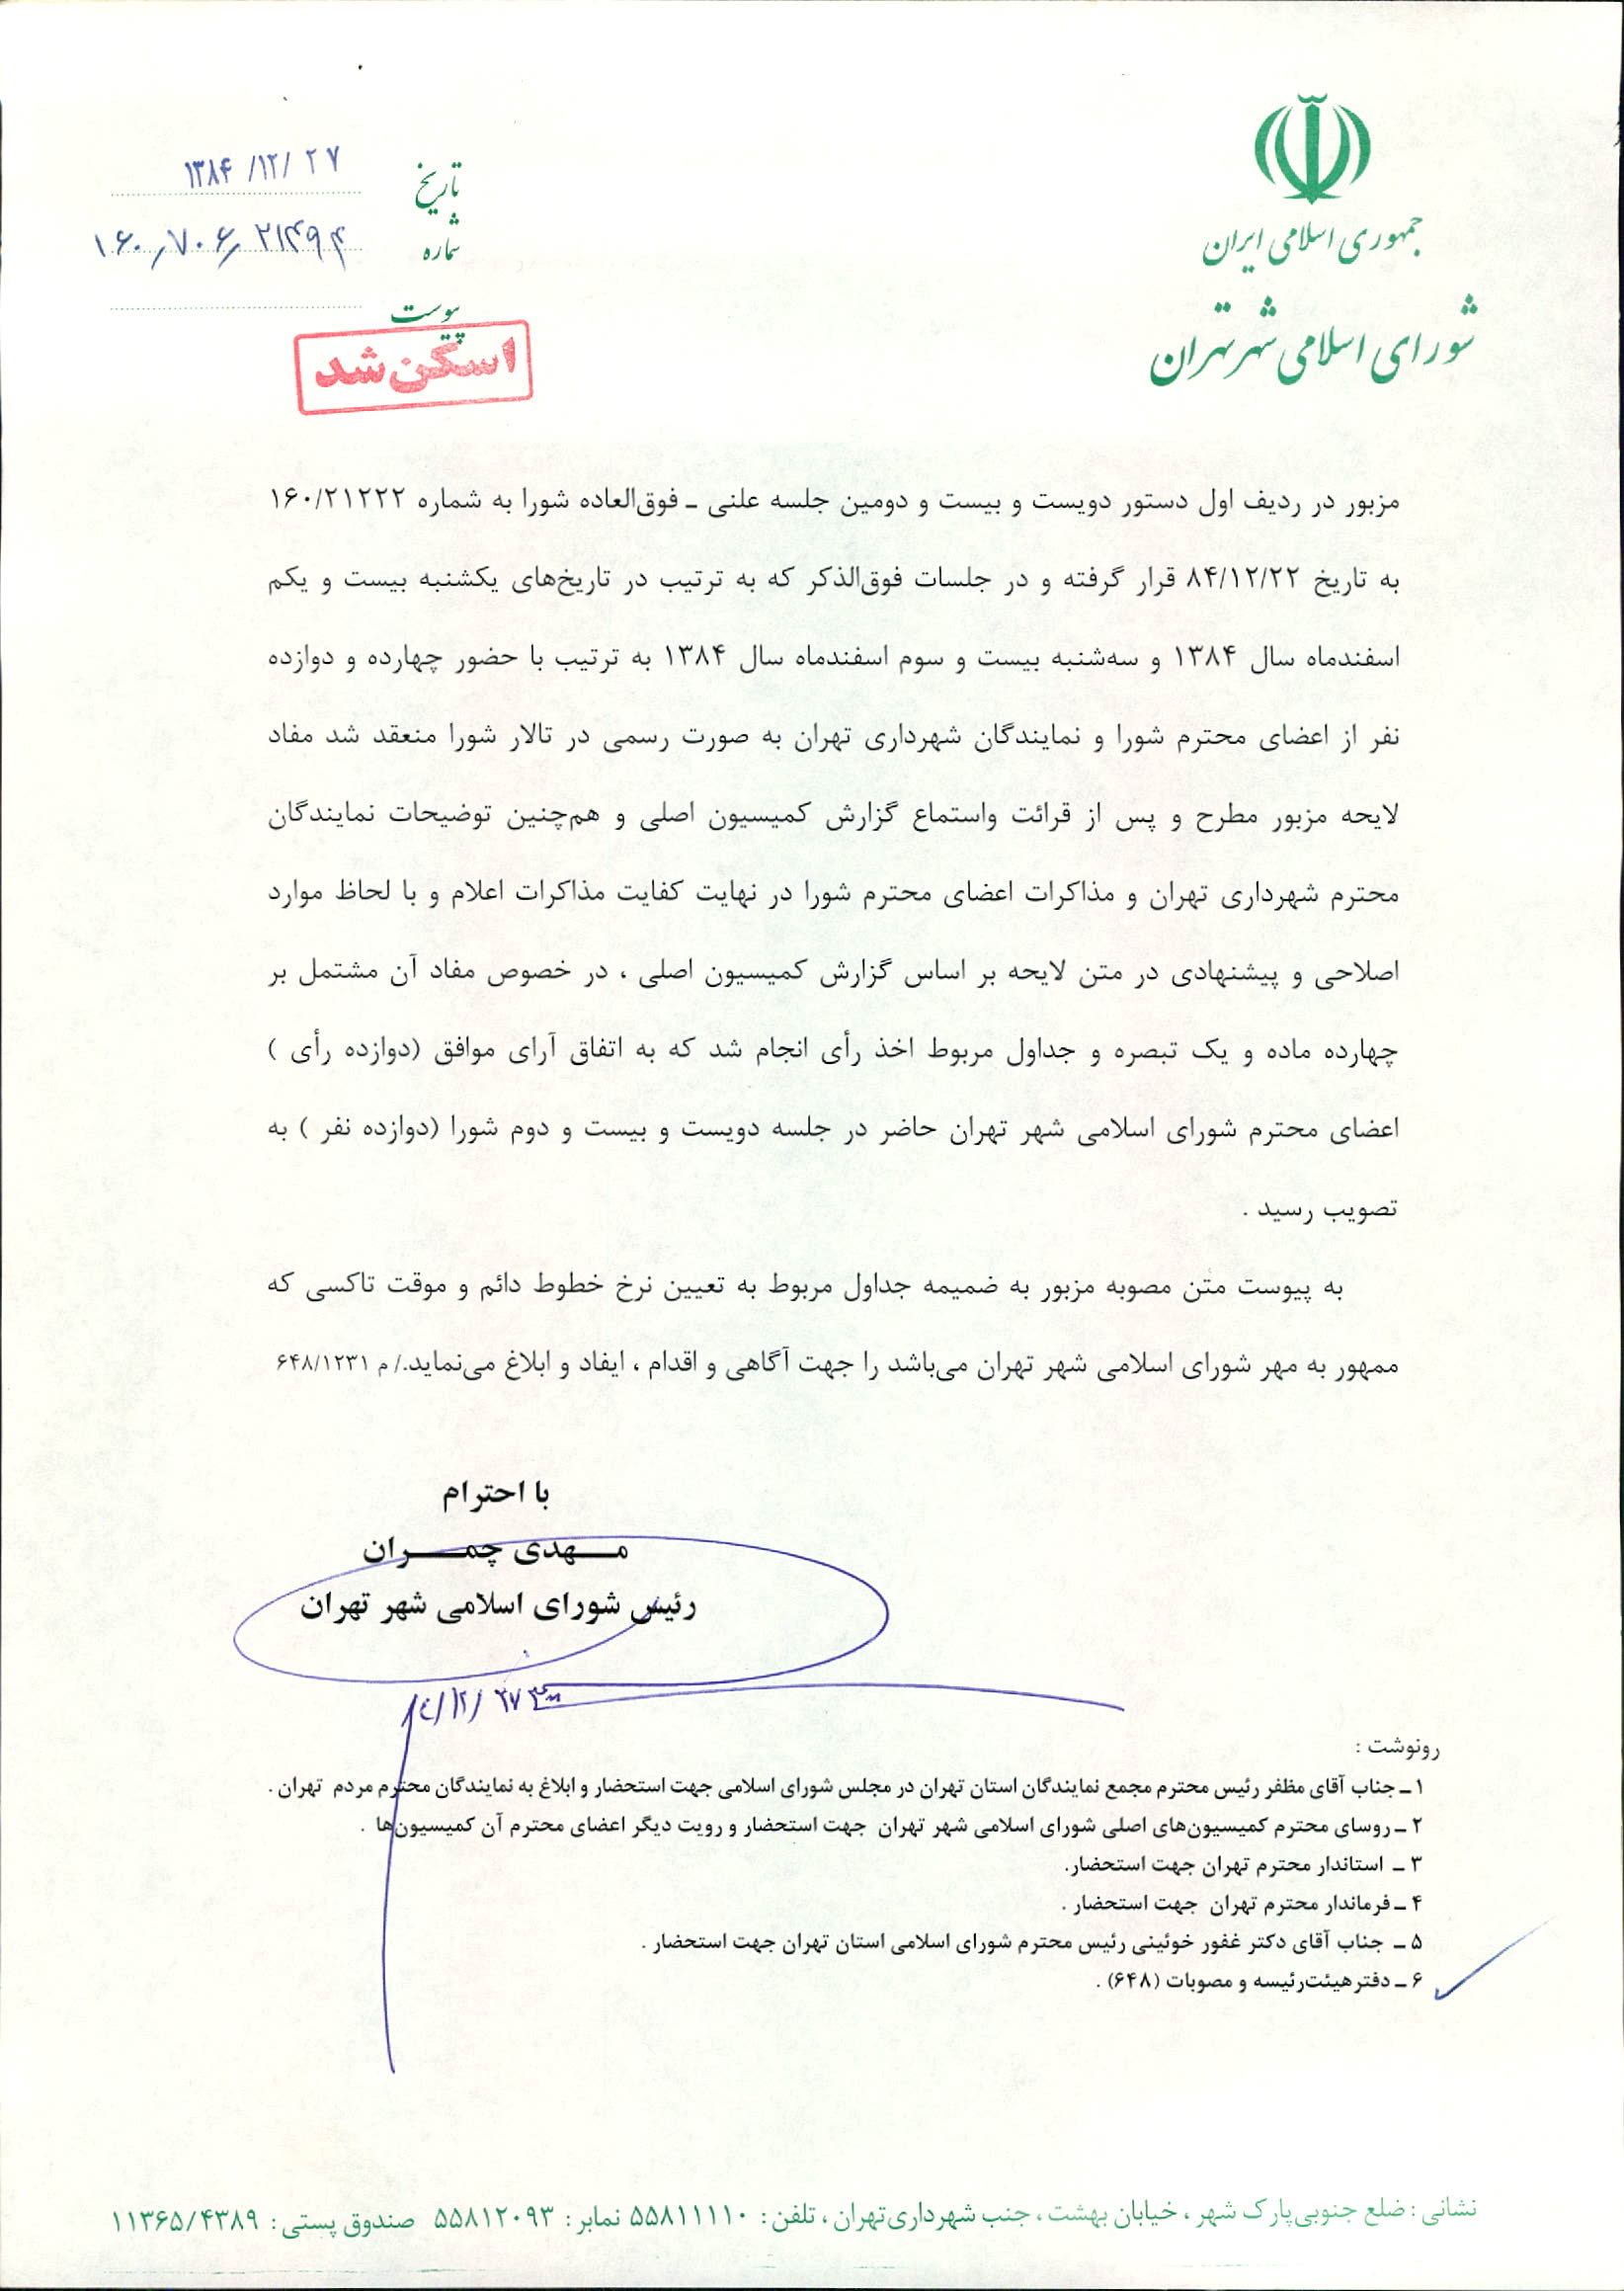 جمهوری اسلامی ایران
شورای اسلامی شهر تهران
تاریخ ۱۳۸۴/۱۲/۲۷
شماره ۱۶۰/۷۰۶/۲۱۴۹۴
پیوست
اسکن شد
مزبور در ردیف اول دستور دویست و بیست و دومین جلسه علنی ـ فوق‌العاده شورا به شماره ۱۶۰/۲۱۲۲۲
به تاریخ ۸۴/۱۲/۲۲ قرار گرفته و در جلسات فوق‌الذکر که به ترتیب در تاریخ‌های یکشنبه بیست و یکم
اسفندماه سال ۱۳۸۴ و سه‌شنبه بیست و سوم اسفندماه سال ۱۳۸۴ به ترتیب با حضور چهارده و دوازده
نفر از اعضای محترم شورا و نمایندگان شهرداری تهران به صورت رسمی در تالار شورا منعقد شد مفاد
لایحه مزبور مطرح و پس از قرائت واستماع گزارش کمیسیون اصلی و هم‌چنین توضیحات نمایندگان
محترم شهرداری تهران و مذاکرات اعضای محترم شورا در نهایت کفایت مذاکرات اعلام و با لحاظ موارد
اصلاحی و پیشنهادی در متن لایحه بر اساس گزارش کمیسیون اصلی ، در خصوص مفاد آن مشتمل بر
چهارده ماده و یک تبصره و جداول مربوط اخذ رأی انجام شد که به اتفاق آرای موافق (دوازده رأی )
اعضای محترم شورای اسلامی شهر تهران حاضر در جلسه دویست و بیست و دوم شورا (دوازده نفر ) به
تصویب رسید .
به پیوست متن مصوبه مزبور به ضمیمه جداول مربوط به تعیین نرخ خطوط دائم و موقت تاکسی که
ممهور به مهر شورای اسلامی شهر تهران می‌باشد را جهت آگاهی و اقدام ، ایفاد و ابلاغ می‌نماید./ م ۶۴۸/۱۲۳۱
با احترام
مـــهدی چمـــــران
رئیس شورای اسلامی شهر تهران
رونوشت :
۱ ـ جناب آقای مظفر رئیس محترم مجمع نمایندگان استان تهران در مجلس شورای اسلامی جهت استحضار و ابلاغ به نمایندگان محترم مردم تهران .
۲ ـ روسای محترم کمیسیون‌های اصلی شورای اسلامی شهر تهران جهت استحضار و رویت دیگر اعضای محترم آن کمیسیون‌ها .
۳ ـ استاندار محترم تهران جهت استحضار.
۴ ـ فرماندار محترم تهران جهت استحضار .
۵ ـ جناب آقای دکتر غفور خوئینی رئیس محترم شورای اسلامی استان تهران جهت استحضار .
۶ ـ دفتر هیئت‌رئیسه و مصوبات (۶۴۸) .
نشانی : ضلع جنوبی پارک شهر ، خیابان بهشت ، جنب شهرداری تهران ، تلفن : ۵۵۸۱۱۱۱۰ نمابر : ۵۵۸۱۲۰۹۳ صندوق پستی : ۱۱۳۶۵/۴۳۸۹